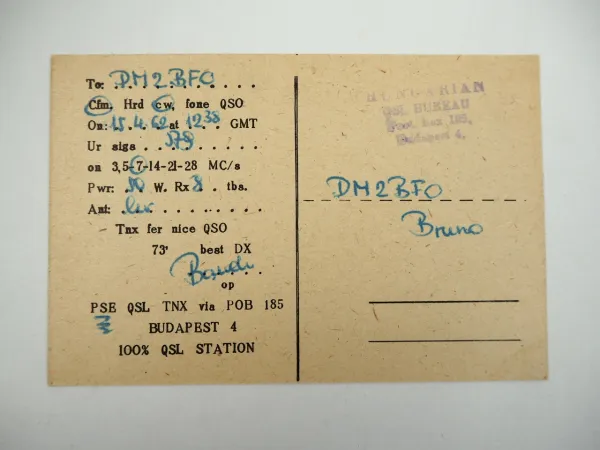 To: DM2BFO
Cfm. Hrd cw, fone QSO
On: 15.4.62 at 1238 GMT
Ur sigs 579
on 3,5-7-14-21-28 MC/s
Pwr: 50 W. Rx 8 tbs.
Ant:
Tnx fer nice QSO
73' best DX
op
PSE QSL TNX via POB 185
BUDAPEST 4
100% QSL STATION
HUNGARIAN
QSL BUREAU
Post. box 185.
Budapest 4.
DM2BFO
Bruno